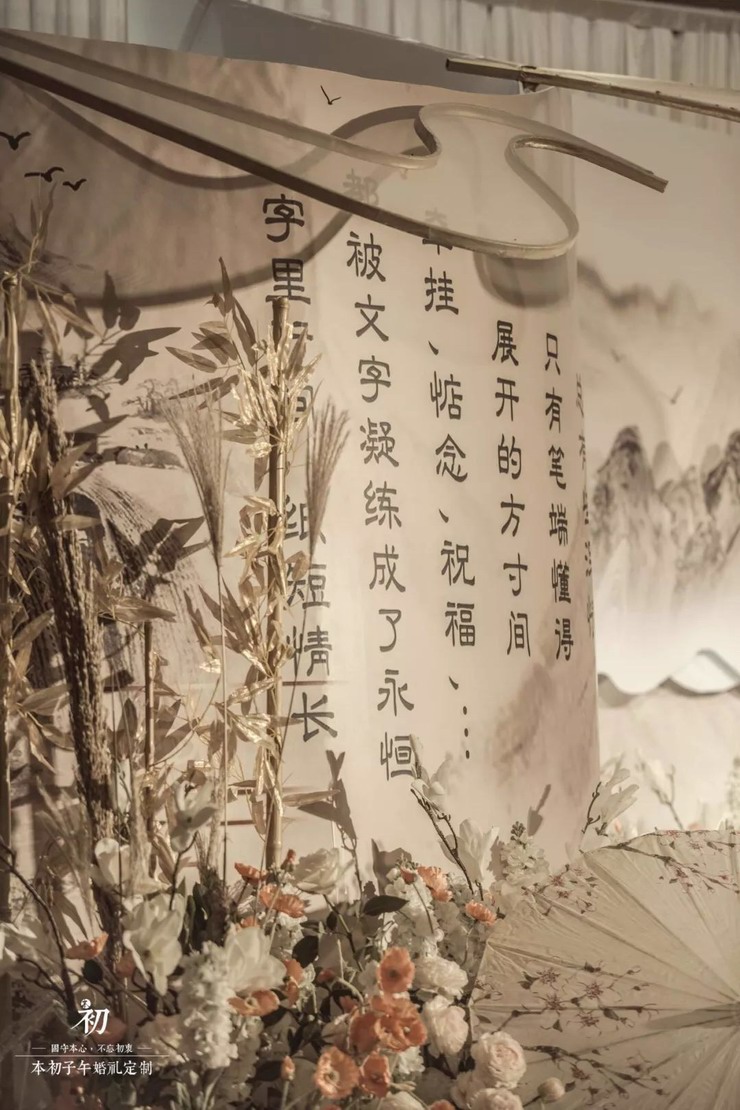 只有笔端懂得
展开的方寸间
牵挂、惦念、祝福、…
都被文字凝练成了永恒
字里行间 纸短情长
初
固守本心·不忘初衷
本初子午婚礼定制